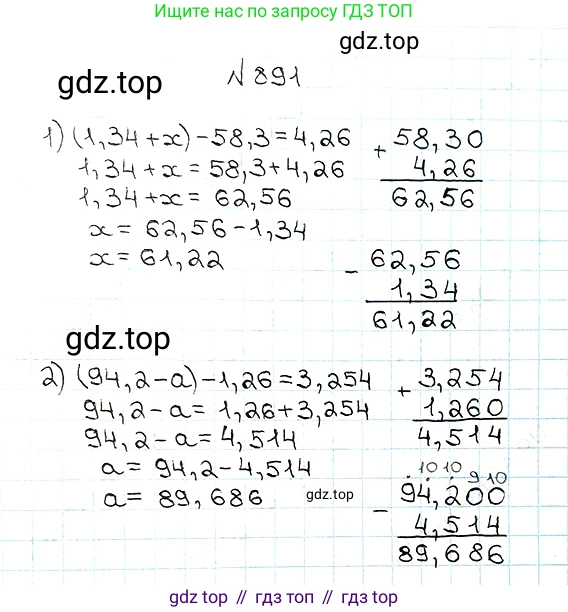 Ищите нас по запросу ГДЗ ТОП
gdz.top
gdz.top
№ 891
1) (1,34+x) - 58,3 = 4,26
1,34 + x = 58,3 + 4,26
1,34 + x = 62,56
x = 62,56 - 1,34
x = 61,22
+ 58,30
4,26
62,56
- 62,56
1,34
61,22
gdz.top
2) (94,2 - a) - 1,26 = 3,254
94,2 - a = 1,26 + 3,254
94,2 - a = 4,514
a = 94,2 - 4,514
a = 89,686
gdz.top
+ 3,254
1,260
4,514
10 10 9 10
- 94,200
4,514
89,686
gdz.top // gdz.top // gdz.top